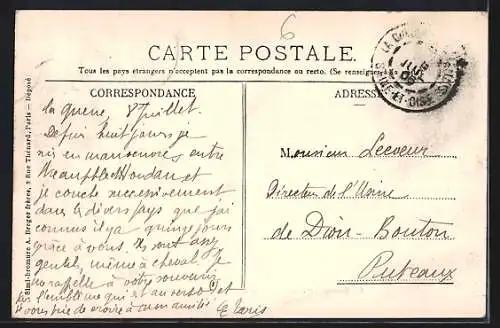 6
CARTE POSTALE.
Tous les pays étrangers n'acceptent pas la correspondance au recto. (Se renseigner
CORRESPONDANCE
ADRESSE
Simi-bromure A. Breger frères, 9 Rue Thénard, Paris — Déposé
SEINE-ET-OISE
La Queue, 8 Juillet.
Depuis huit jours je
suis en manœuvres entre
Neauphle & Houdan et
je couche successivement
dans les divers pays que j'ai
connus il y a quinze jours
grâce à vous. Ils sont assez
gentils, même à cheval. Je
me rappelle à votre souvenir
par l'emblème qui est au verso et
vous prie de croire à mon amitié
Monsieur Lecoeur
Directeur de l'Usine
de Dion-Bouton
Puteaux